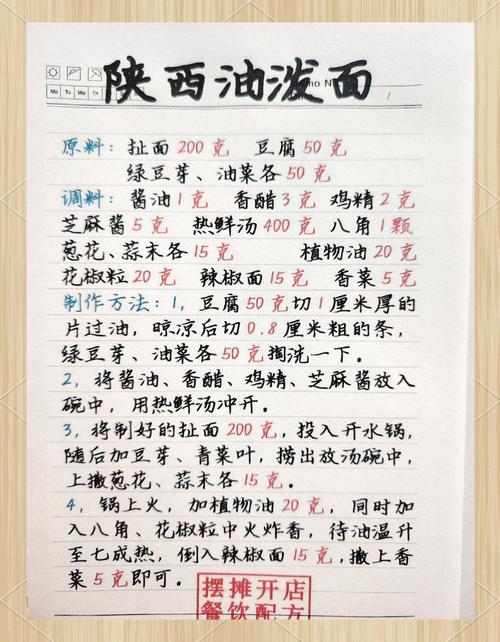 陕西油泼面
Mo Tu We Th
原料：扯面200克 豆腐50克
绿豆芽、油菜各50克
调料：酱油1克 香醋3克 鸡精2克
芝麻酱5克 热鲜汤400克 八角1颗
葱花、蒜末各15克 植物油20克
花椒粒20克 辣椒面15克 香菜5克
制作方法：1，豆腐50克切1厘米厚的
片过油，晾凉后切0.8厘米粗的条，
绿豆芽、油菜各50克掏洗一下。
2，将酱油、香醋、鸡精、芝麻酱放入
碗中，用热鲜汤冲开。
3，将制好的扯面200克，投入开水锅，
随后加豆芽、青菜叶，捞出放汤碗中，
上撒葱花、蒜末各15克。
4，锅上火，加植物油20克，同时加
入八角、花椒粒中火炸香，待油温升
至七成热，倒入辣椒面15克，撒上香
菜5克即可。
摆摊开店
餐饮配方